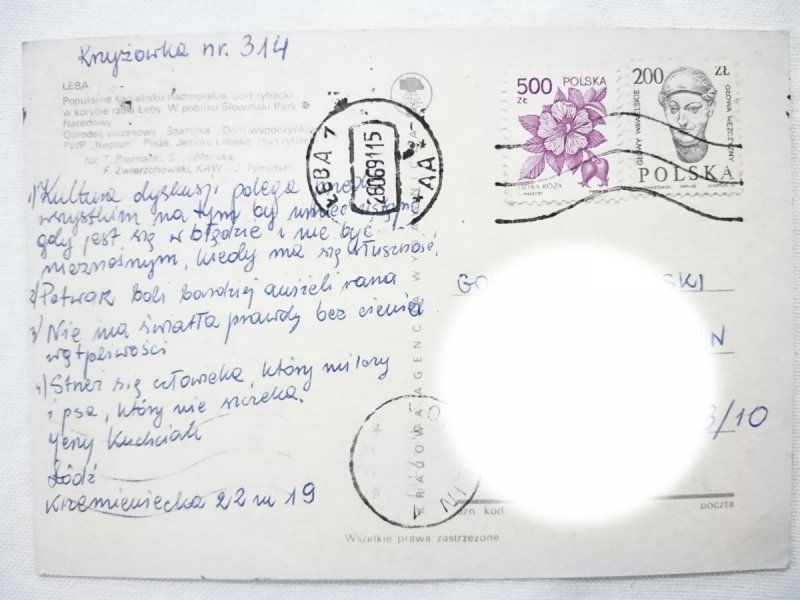 Krzyżówka nr. 314
ŁEBA
Popularne kąpielisko nadmorskie, port rybacki
w korycie rzeki Łeby. W pobliżu Słowiński Park
Narodowy.
Ośrodek wczasowy „Szarotka". Dom wypoczynkowy
FWP „Neptun". Plaża. Jezioro Łebsko. Port rybacki
fot. T. Biernacki, S. Jabłońska,
F. Zwierzchowski, KAW - J. Tymiński
1) Kultura dyskusji polega przede
wszystkim na tym by umieć
gdy jest się w błędzie i nie być
nieznośnym, kiedy ma się słuszność.
2) Potwarz boli bardziej aniżeli rana
3) Nie ma światła prawdy bez cienia
wątpliwości
4) Strzeż się człowieka, który milczy
i psa, który nie szczeka.
Jerzy
Łódź
Krzemieniecka 22 m 19
ŁEBA 1
28069115
AA
500
ZŁ
POLSKA
DZIKA RÓŻA
200 ZŁ
GŁOWY WAWELSKIE
GŁOWA MĘŻCZYZNY
POLSKA
KRAJOWA AGENCJA WYDAWNICZA
GO
SKI
N
3/10
ozn. kod
poczta
Wszelkie prawa zastrzeżone